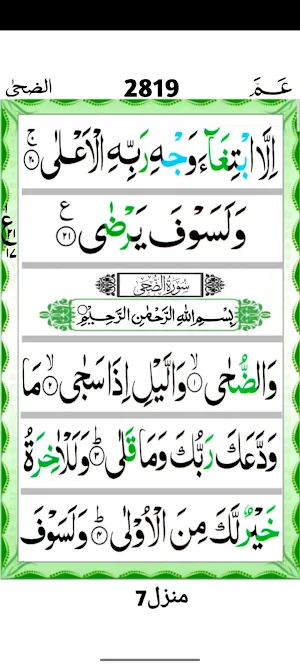 الضحىٰ 2819 عَمَّ
اِلَّا ابْتِغَآءَ وَجْهِ رَبِّهِ الْاَعْلٰى ۚ ۝۲۰
وَلَسَوْفَ يَرْضٰى ۝۲۱ ع
ع ۱ ۲۱ ۱۷
سُوْرَةُ الضُّحٰى
بِسْمِ اللهِ الرَّحْمٰنِ الرَّحِيْمِ
وَالضُّحٰى ۙ ۝۱ وَالَّيْلِ اِذَا سَجٰى ۙ ۝۲ مَا
وَدَّعَكَ رَبُّكَ وَمَا قَلٰى ؕ ۝۳ وَلَلْاٰخِرَةُ
خَيْرٌ لَّكَ مِنَ الْاُوْلٰى ؕ ۝۴ وَلَسَوْفَ
منزل 7